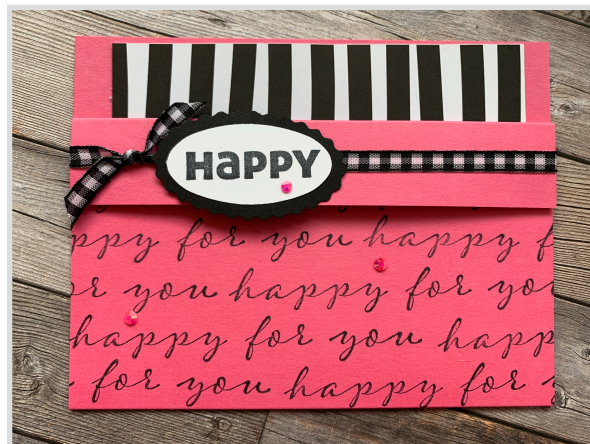 HAPPY
ppy for you happy f
r you happy for you
happy for you happy
for you happy for you